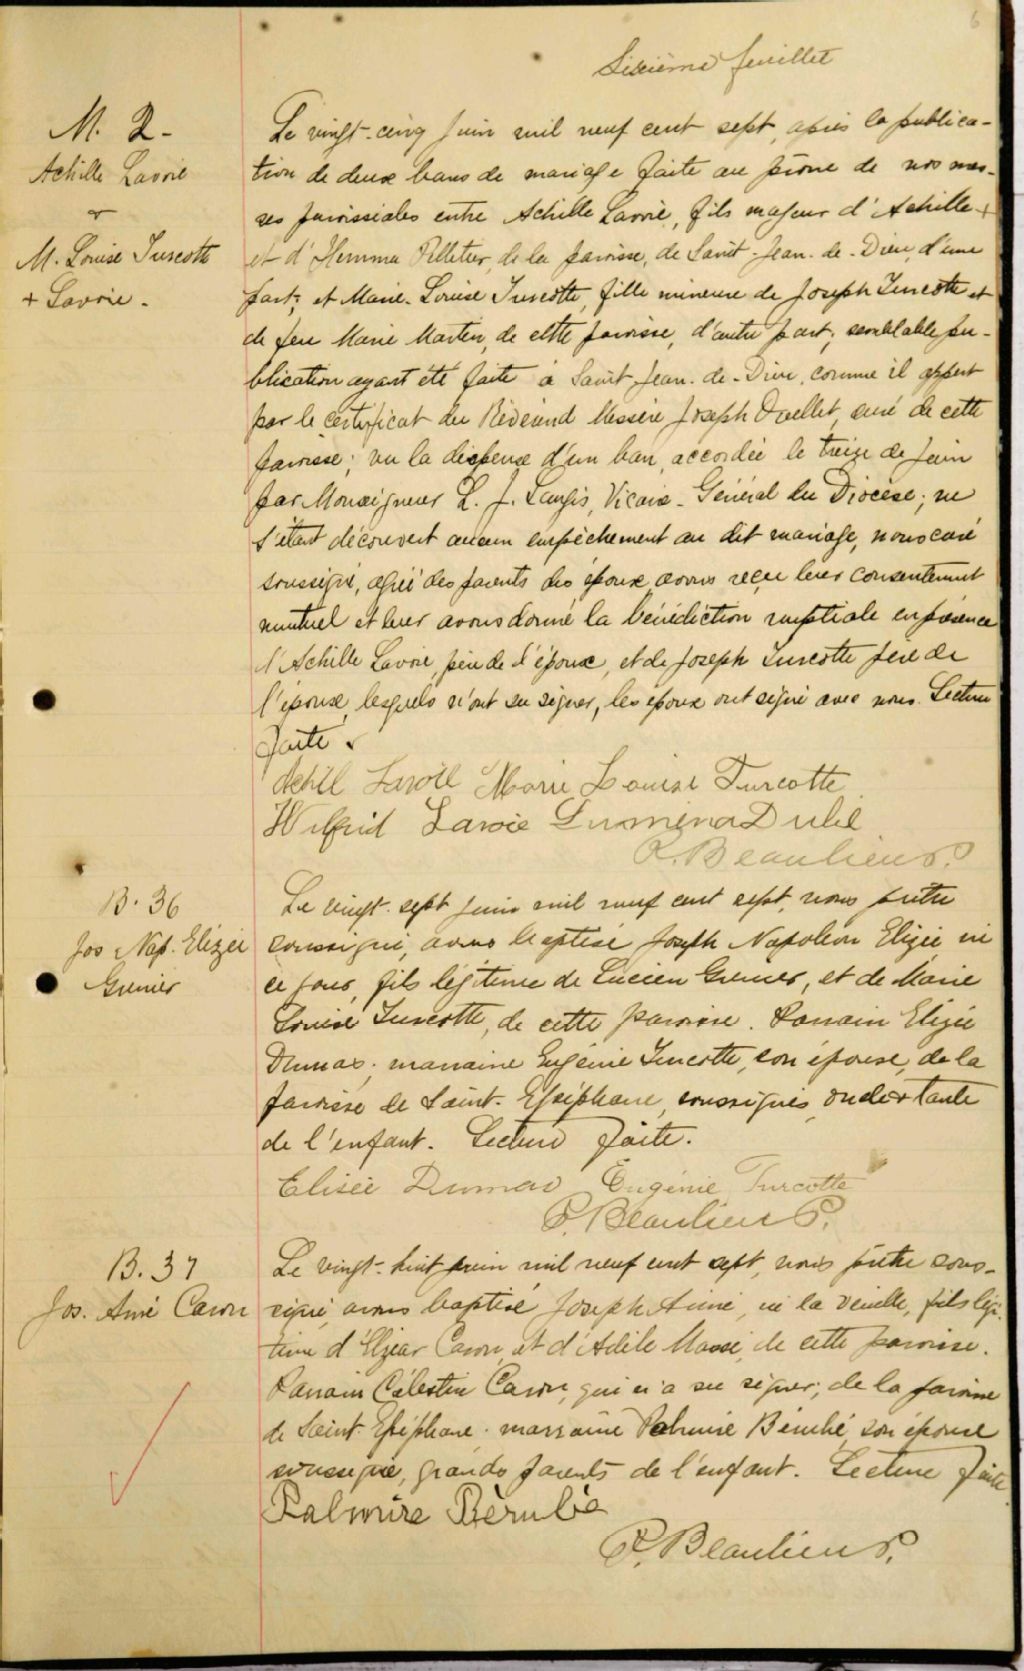 6
Sixième feuillet
M. 2-
Achille Lavoie
&
M. Louise Turcotte
+ Lavoie.
Le vingt-cinq juin mil neuf cent sept, après la publica-
tion de deux bans de mariage faite au prône de nos mes-
ses paroissiales entre Achille Lavoie, fils majeur d'Achille +
et d'Hemma Pelletier, de la paroisse, de Saint-Jean-de-Dieu, d'une
part; et Marie-Louise Turcotte, fille mineure de Joseph Turcotte et
de feu Marie Martin, de cette paroisse, d'autre part; semblable pu-
blication ayant été faite à Saint Jean-de-Dieu, comme il appert
par le certificat du Révérend Messire Joseph Ouellet, curé de cette
paroisse; vu la dispense d'un ban, accordée le treize de juin
par Monseigneur L. J. Langis, Vicaire-Général du Diocèse; ne
s'étant découvert aucun empêchement au dit mariage, nous curé
soussigné, agréé des parents des époux avons reçu leur consentement
mutuel et leur avons donné la bénédiction nuptiale en présence
d'Achille Lavoie, père de l'époux, et de Joseph Turcotte père de
l'épouse, lesquels n'ont su signer, les époux ont signé avec nous. Lecture
faite.
Achill Lavoie Marie Louise Turcotte
Wilfrid Lavoie Lumina Dubé
P. Beaulieu P.
B. 36
Jos Nap. Elizée
Grenier
Le vingt-sept juin mil neuf cent sept, nous prêtre
soussigné, avons baptisé Joseph Napoléon Elizée né
ce jour, fils légitime de Lucien Grenier, et de Marie
Louise Turcotte, de cette paroisse. Parrain Elizée
Dumas; marraine Eugénie Turcotte, son épouse, de la
paroisse de Saint-Epiphane, soussignés, oncle & tante
de l'enfant. Lecture faite.
Elisée Dumas Eugénie Turcotte
P. Beaulieu P.
B. 37
Jos. Aimé Caron
Le vingt-huit juin mil neuf cent sept, nous prêtre sous-
signé, avons baptisé Joseph Aimé, né la veille, fils légi-
time d'Elzéar Caron, et d'Adèle Massé, de cette paroisse.
Parrain Célestin Caron, qui n'a su signer; de la paroisse
de Saint-Epiphane; marraine Palmire Bérubé, son épouse
soussignée, grands parents de l'enfant. Lecture faite.
Palmire Bérubé
P. Beaulieu P.